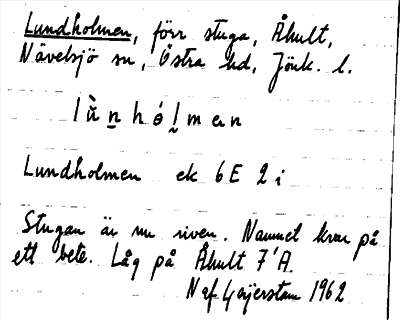 Lundholmen, förr stuga, Åhult,
Nävelsjö sn, Östra hd, Jönk. l.
l ǜ n̲ h ó l̰ m a n
Lundholmen ek 6E 2 i
Stugan är nu riven. Namnet kvar på
ett bete. Låg på Åhult 7'A.
N af Geijerstam 1962